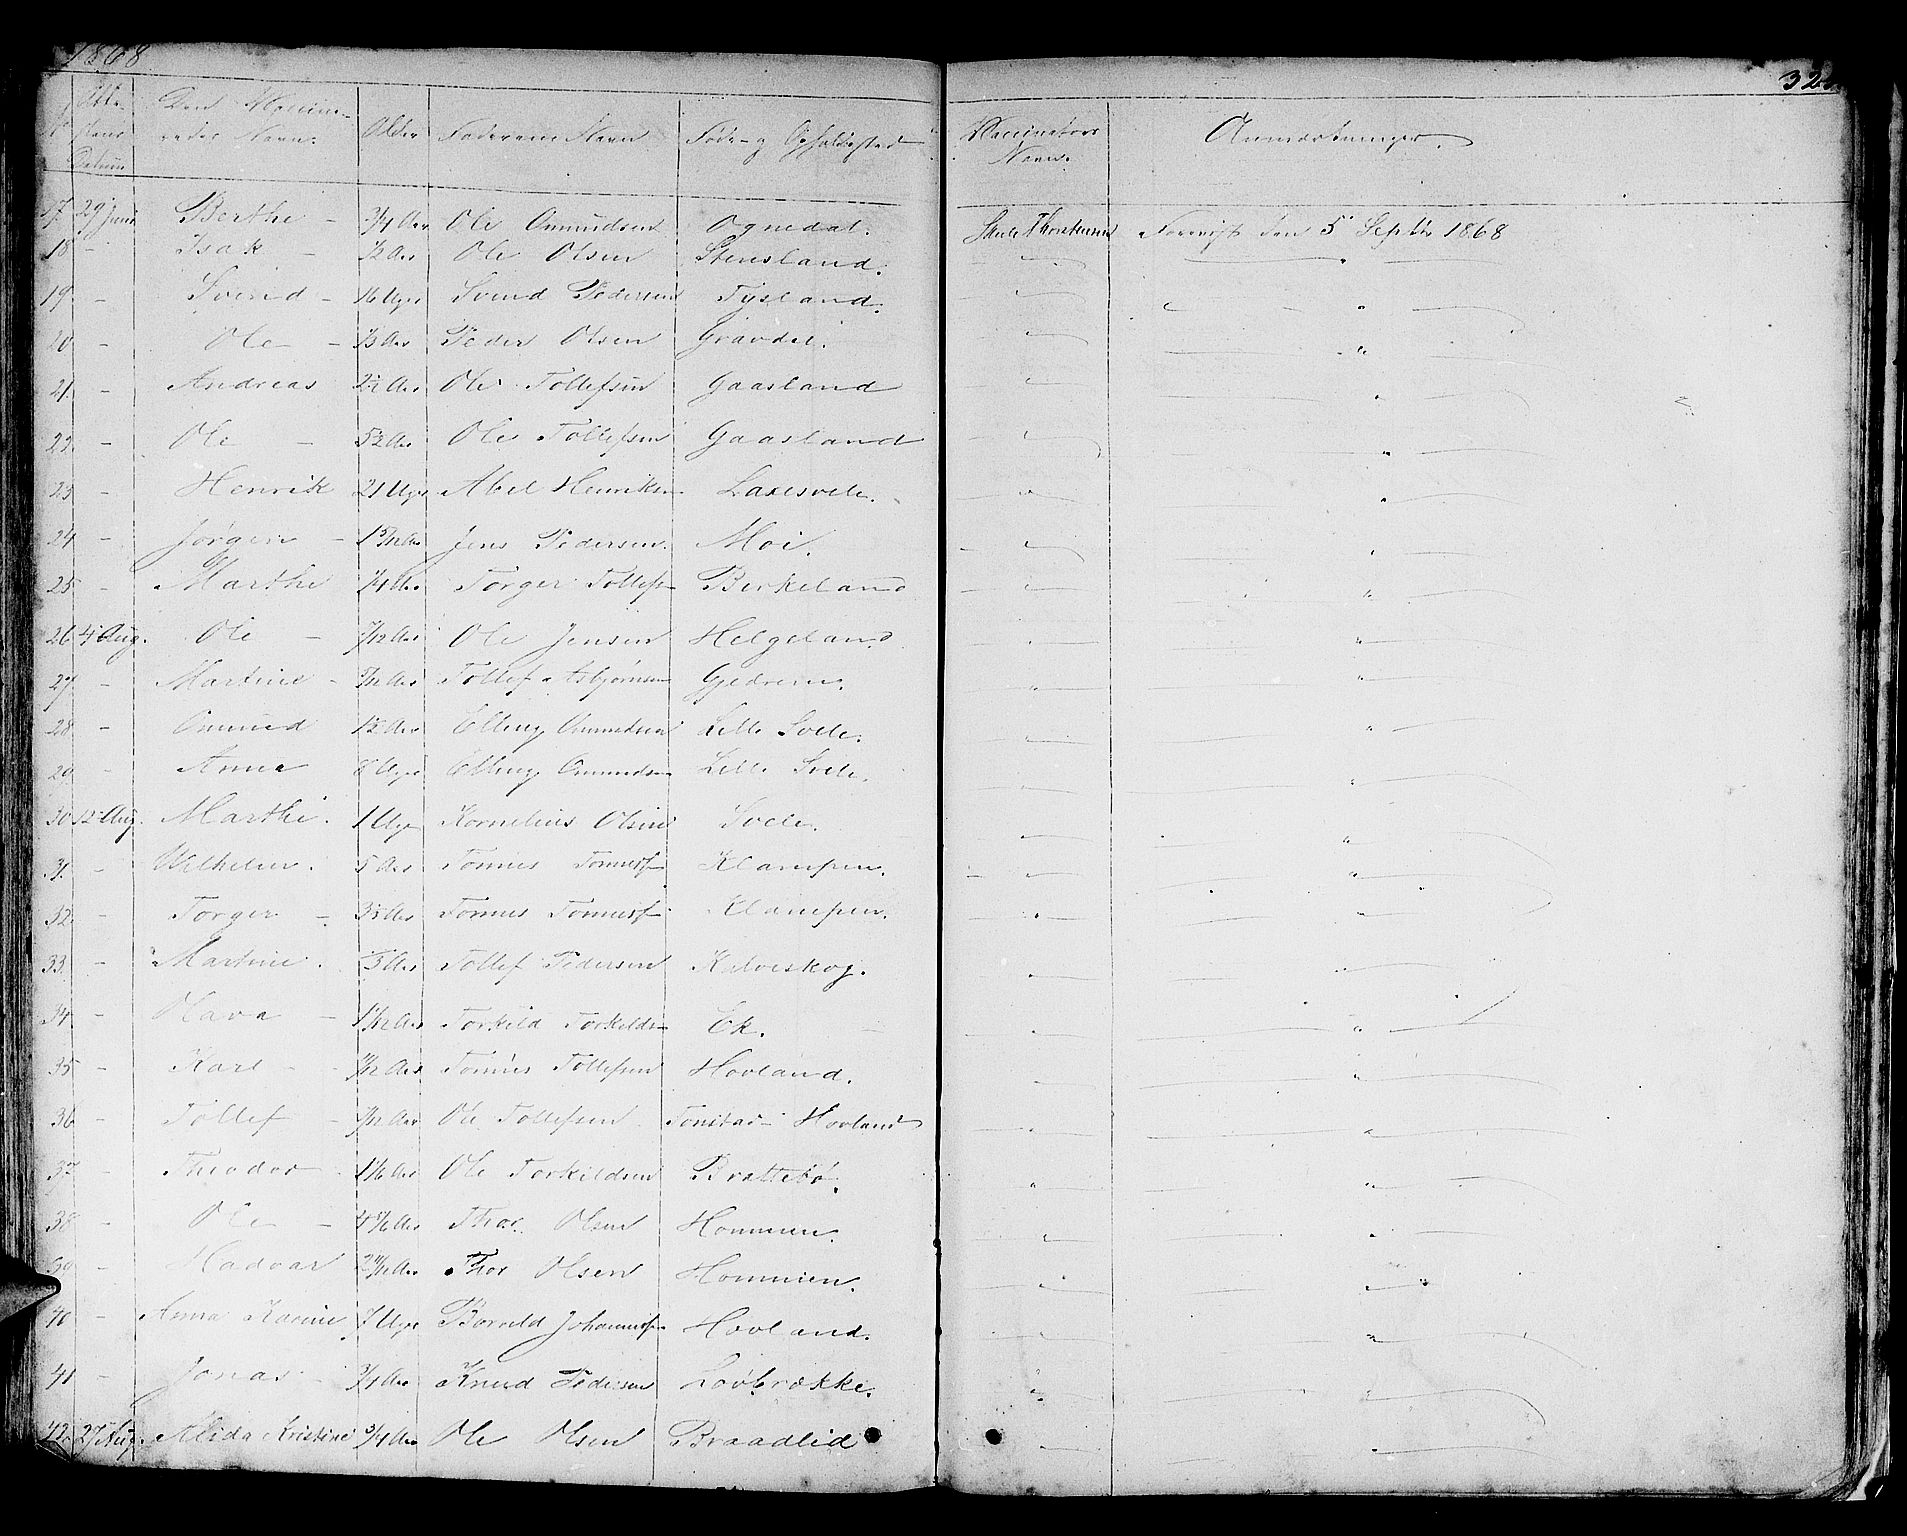 1868
32
Atte-
stens
Datum
Den Vaccine-
redes Navn.
Alder
Faderens Navn
Føde- og Opholdssted
Vaccinators
Navn.
Anmærkninger.
17. 29 Juni Berthe - 3/4 Aar Ole Ommundsen Ognedal. Forevist den 5 Septbr 1868
18 - Isak - 1/2 Aar Ole Olsen Stensland. - " -
19 - Svend - 16 Uger Svend Pedersen Tysland. - " -
20 - Ole - 1/3 Aar Peder Olsen Gravdal. - " -
21. - Andreas 2 1/2 Aar Ole Tollefsen Gaasland - " -
22. - Ole - 5 1/2 Aar Ole Tollefsen Gaasland - " -
23 - Henrik 21 Uger Abel Henriksen Laxesvele. - " -
24 - Jørgen - 1 5/12 Aar Jens Pedersen. Moi. - " -
25 - Marthe 1/4 Aar Torger Tollefs Birkeland - " -
26 4 Aug. Ole - 7/12 Aar Ole Jensen Helgeland - " -
27 - Martine - 5/12 Aar Tollef Asbjørnsen Gjedrem. - " -
28 - Ommund 1 1/2 Aar Elling Ommundsen Lille Svele. - " -
29 - Anna 8 Uger Elling Ommundsen Lille Svele. - " -
30 12 Aug. Marthe. 1 Uge Kornelius Olsen Svele. - " -
31. - Wilhelm. 5 Aar Tønnes Tønnesf Klampen. - " -
32. - Torger - 3 1/3 Aar Tønnes Tønnesf Klampen. - " -
33. - Martine. 1/3 Aar Tollef Pedersen Kalveskog. - " -
34. - Olava - 1 1/12 Aar Torkild Torkilds Ek. - " -
35 - Karl - 11/12 Aar Tønnes Tollefsen Hovland. - " -
36 - Tollef - 11/12 Aar Ole Tollefsen Tonstad Hovland - " -
37 - Theodor - 1 1/6 Aar Ole Torkildsen Brattebø. - " -
38 - Ole - 4 5/6 Aar Thor Olsen Hommen. - " -
39 - Hadvar 2 11/12 Aar Thor Olsen Hommen. - " -
40 - Anna Karine 7 Uger Børreld Johannesf Hovland. - " -
41 - Jonas - 3/4 Aar Knud Pedersen Løvbrække. - " -
42. 27 Aug. Alida Kristine 3/4 Aar Ole Olsen Braadlid - " -